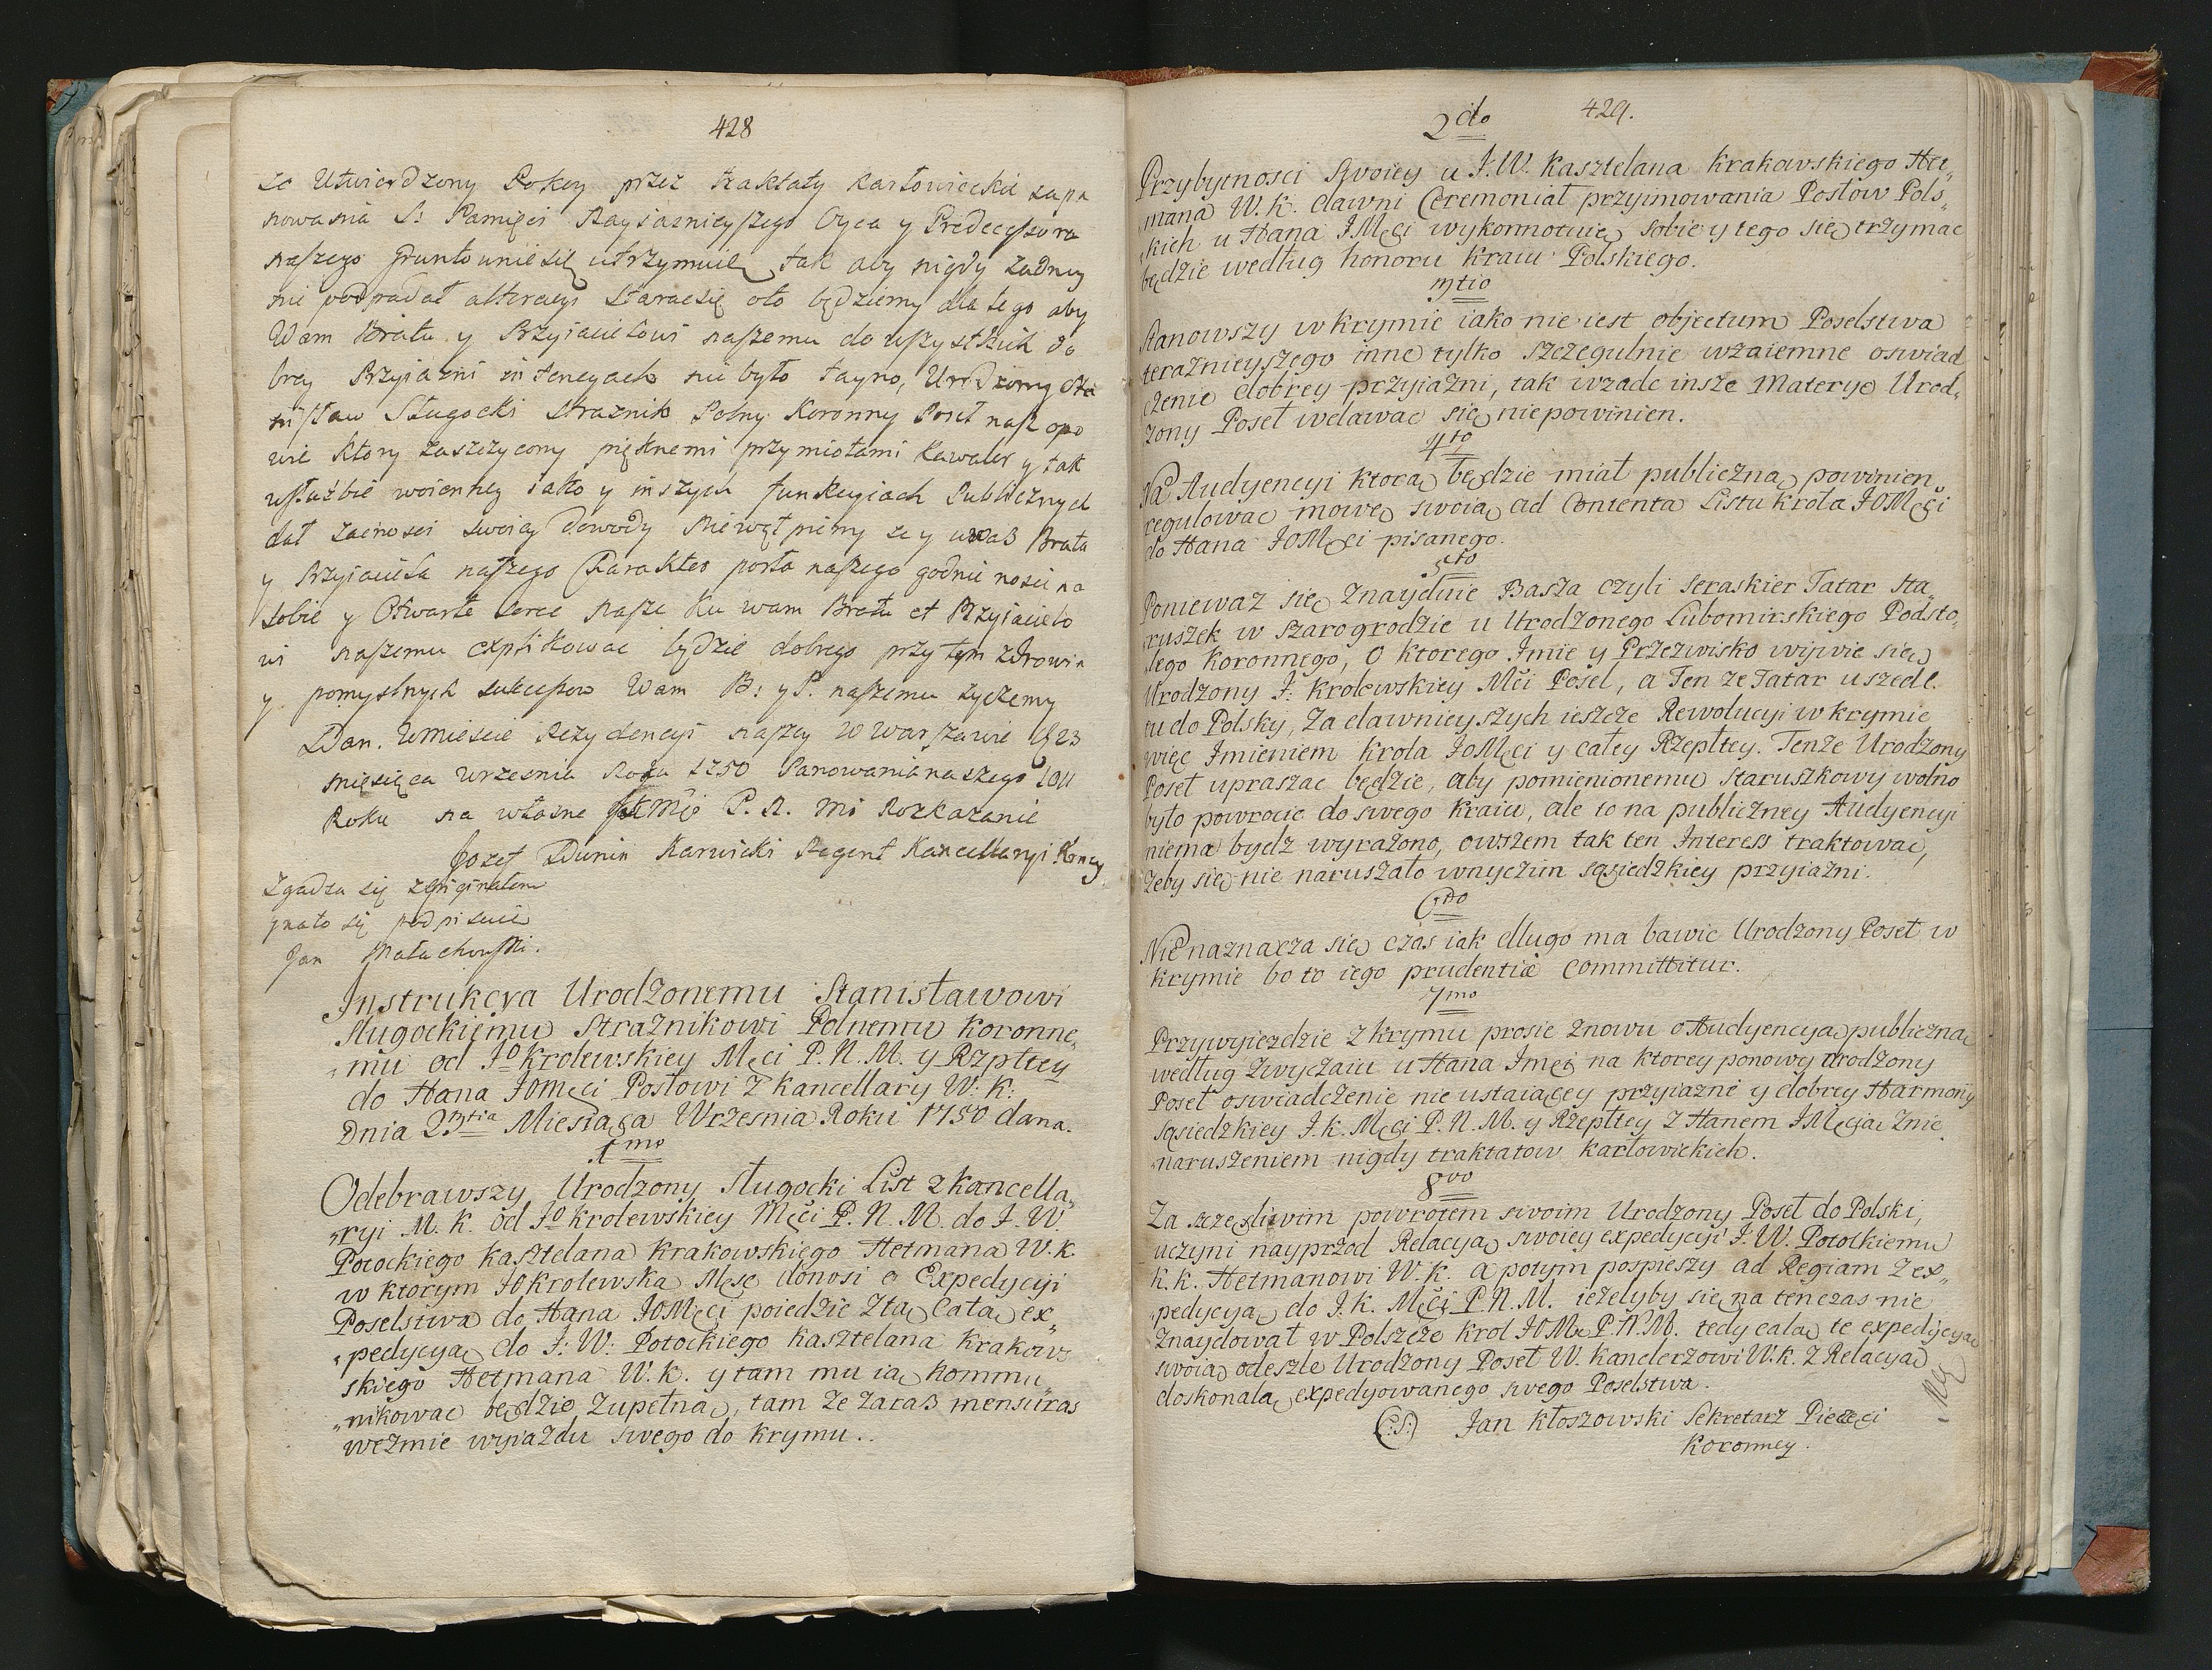 428
ze Utwierdzony Pokoy przez traktaty Karłowieckie za pa
nowania S: Pamięci Nayiasnieyszego Oyca y Predecessora
naszego gruntownie się utrzymuie, tak aby nigdy żadney
nie podpadał alteracyi starac się oto będziemy dla tego aby
Wam Bratu y Przyiacielowi naszemu do wszystkich do
brey Przyiazni intencyach nie było tayno, Urodzony Sta
nisław Sługocki Straznik Polny Koronny Poseł nasz opo
wie ktory zaszczycony pięknemi przymiotami Kawaler y tak
w służbie woienney iako y inszych funkcyiach Publicznych
dał zacnosci swoiey dowody Niewątpiemy ze y u was Brata
y Przyiaciela naszego Charakter posła naszego godnie nosic na
sobie y Otwarte serce nasze ku wam Bratu et Przyiacielo
wi naszemu explikowac będzie dobrego przy tym zdrowia
y pomyslnych sukcessow Wam B: y P. naszemu życzemy
Dan. W miescie Rezydencyi naszey w Warszawie d 23
miesiąca wrzesnia Roku 1750 Panowania naszego
Roku na własne P. N. Mi Rozkazanie
Jozef Dunin Karwicki Regent Kancellaryi Koney
Zgadza się z originałem
na to się podpisuie
Jan Małachowski.
Instrukcya Urodzonemu Stanisławowi
Sługockiemu Straznikowi Polnemu Koronne„
„mu od Jo Krolewskiey Męci P. N. M. y Rzpltey
do Hana JOMęci Posłowi z Kancellary W. K.
Dnia 23tia Miesiąca Wrzesnia Roku 1750 dana.
1mo
Odebrawszy Urodzony Sługocki List z Kancella„
„ryi M. K. od Jo Krolewskiey Męci P. N. M. do J. W.
Potockiego Kasztelana Krakowskiego Hetmana W. K.
w ktorym JO Krolewska Męsc donosi o Expedycyi
Poselstwa do Hana JOMęci poiedzie z tą całą ex„
„pedycyą do J: W: Potockiego Kasztelana Krakows
skiego Hetmana W. K. y tam mu ią kommu„
„nikowac będzie zupełną, tam ze zaras mensuras
weźmie wyiazdu swego do Krymu..
429.
2do
Przybytnosci Swoiey u J. W. Kasztelana Krakowskiego Het„
mana W. K. dawni Ceremoniał przyimowania Posłow Pols„
„kich u Hana JMęci wykonnotuie sobie y tego się trzymac
będzie według honoru Kraiu Polskiego.
3tio
Stanowszy w Krymie iako nie iest objectum Poselstwa
teraznieyszego inne tylko szczegulnie wzaiemne oswiad
czenie dobrey przyiazni, tak wzade insze Materye Urod„
zony Poseł wdawac się nie powinien.
4to
Na Audyencyi ktorą będzie miał publiczną powinien„
regulowac mowę swoią ad Contenta Listu Krola JOMęci
do Hana JOMęci pisanego.
5to
Poniewaz się znayduie Basza czyli Seraskier Tatar Sta„
ruszek w Szarogrodzie u Urodzonego Lubomirskiego Podsto„
lego Koronnego, o ktorego Imie y Przezwisko wijwie się
Urodzony J: Krolewskiey Mci Poseł, a Ten ze Tatar uszedł
tu do Polsky, za dawnieyszych ieszcze Rewolucyi w Krymie
więc Imieniem Krola JoMęci y całey Rzepltey. Tenze Urodzony
Poseł upraszac będzie, aby pomienionemu Staruszkowy wolno
było powrocic do swego kraiu, ale to na publiczney Audyencyi
niema bydz wyrazono, owszem tak ten Interess traktowac,
żeby się nie naruszało wnyczim sąsiedzkiey przyiazni.
6to
Nie naznacza się czas iak długo ma bawic Urodzony Poseł w
Krymie bo to iego prudentiæ committitur.
7mo
Przywyiezdzie z Krymu prosic znowu o Audyencyą publiczną
według zwyczaiu u Hana Jmęci na ktorey ponowy Urodzony
Poseł oswiadczenie nie ustaiącey przyiazni y dobrey Harmonij
sąsiedzkiey J. K. Męci P. N. M. y Rzepltey z Hanem JMęcią z nie
„naruszeniem nigdy traktatow Karłowickich.
8vo
Za szczęsliwim powrotem swoim Urodzony Poseł do Polski,
uczyni nayprzod Relacyą swoiey expedycyi J. W. Potockiemu
K. K. Hetmanowi W. K. a potym pospieszy ad Regiam z ex„
„pedycyą do J. K. Męci P. N. M. iezelyby się na tenczas nie
znaydował w Polszcze Krol JOMc P. N. M. tedy całą te expedycyą
swoią odeszle Urodzony Poseł W. Kanclerzowi W. K. z Relacyą
doskonałą expedyowanego swego Poselstwa.
(:S:) Jan Kłoszowski Sekretarz Pieczęci
Koronney.